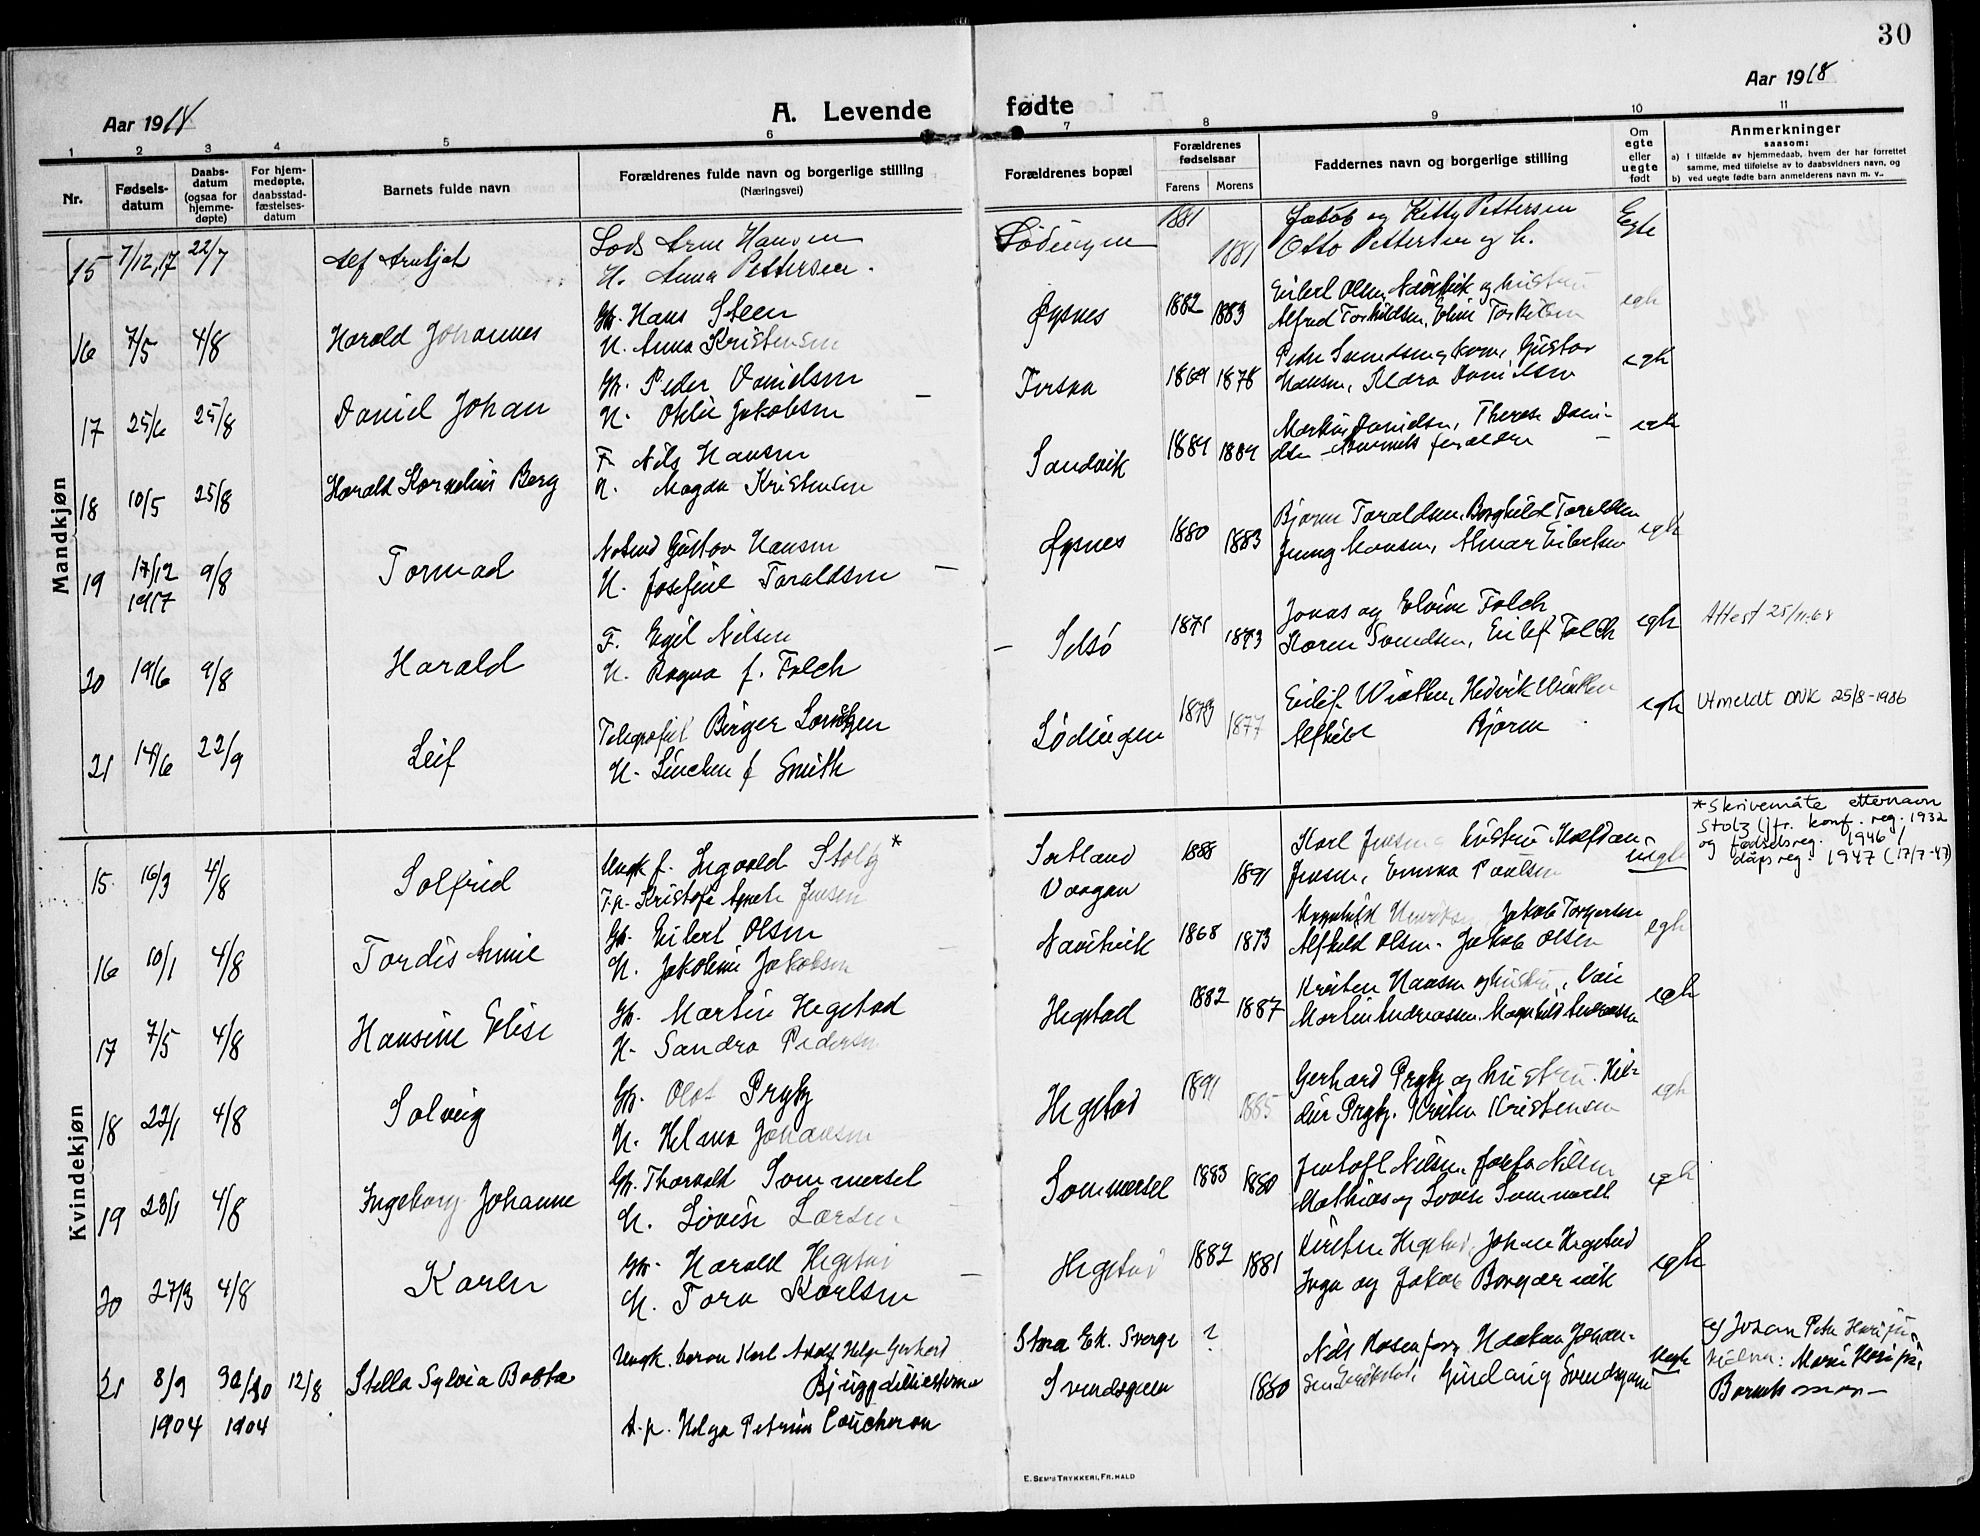 30
Aar 1918
A. Levende fødte
Aar 1918
1 2 3 4 5 6 7 8 9 10 11
Nr.
Fødsels-
datum
Daabs-
datum
(ogsaa for
hjemme-
døpte)
For hjem-
medøpte,
daabsstad-
fæstelses-
datum
Barnets fulde navn
Forældrenes fulde navn og borgerlige stilling
(Næringsvei)
Forældrenes bopæl
Forældrenes
fødselsaar
Farens Morens
Faddernes navn og borgerlige stilling
Om
egte
eller
uegte
født
Anmerkninger
saasom:
a) I tilfælde av hjemmedaab, hvem der har forrettet
samme, med tilføielse av to daabsvidners navn, og
b) ved uegte fødte barn anmelderens navn m. v..
Mandkjøn
15 7/12,17 22/7 Alf
Lods Arne Hansen
H. Anna Pettersen.
Lødingen 1881 1881
Jakob og Kitty Pettersen
Otto Pettersen og h.
Egte
16 7/5 4/8 Harald Johannes
Gbr. Hans Steen
H. Anna Kristensen
Øysnes 1882 1883
Eilert Olsen, og hustru
Alfred Torkildsen, Eline Torkildsen
egte
17 25/6 25/8 Daniel Johan
Gbr. Peder Danielsen
H. Otelie Jakobsen
1869 1878
Peder Svendsen og kone, Gustav
Hansen, Danielsen
egte
18 10/5 25/8 Harald Kornelius Berg
F. Nils Hansen
H. Magda Kristensen
Sandvik 1884 1884
Martin Danielsen, Therese Dani-
elsen - Barnets forældre
egte
19 17/12 1917 9/8 Tormod
Gustav Hansen
H. Josefine Taraldsen
Øysnes 1880 1883
Bjarne Taraldsen, Borghild Taraldsen
Jenny Hansen, Eilertsen
egte
20 19/6 9/8 Harald
F. Egil Nilsen
H. Ragna f. Falch
Selsø 1871 1873
Jonas og Elvine Falch
Karen Svendsen, Eilif Falch
egte
Attest 25/11.68
21 14/6 22/9 Leif
Telegrafist Birger Lorntzen
H. Linchen f Smith
Lødingen 1873 1877
Eilif Winther, Hedvik Winther
Alfhild Bjørne
egte
Utmeldt DNK 25/8-1986
Kvindekjøn
15 16/3 4/8 Solfrid
Ungk f. Ingvald Stolz *
F.p. Kristofa Agnete Jensen
Sortland 1888
Vaagan 1891
Karl Jensen hustru Halfdan
Jensen, Emma Paulsen
uegte
* Skrivemåte etternavn
Stolz (jfr. konf. reg. 1932
og fødselsreg. 1946 /
dåpsreg. 1947 (17/7-47)
16 10/1 4/8 Tordis Annie
Gbr. Eilert Olsen
H. Jakobine Jakobsen
1868 1873
Jakob Torgersen
Alfhild Olsen. Jakob Olsen
egte
17 7/5 4/8 Hansine Elise
Gbr. Martin Hegstad
H. Sandra Pedersen
Hegstad 1882 1887
Kristen Hansen og hustru,
Martin Andreassen, Magnhild Andreassen
egte
18 22/1 4/8 Solveig
Gbr. Olaf Prytz
H. Helana Johansen
Hegstad 1891 1885
Gerhard Prytz og hustru. Hil-
dur Prytz. Kristen Kristensen
egte
19 28/1 4/8 Ingeborg Johanne
Gbr. Thorvald Sommersel
H. Lovise Larsen
Sommersel 1883 1880
Jentoft Nilsen, Josefa Nilsen
Mathias og Lovise Sommersel
egte
20 27/3 4/8 Karen
Gbr. Harald Hegstad
H. Tora Karlsen
Hegstad 1882 1881
Kirsten Hegstad, Johan Hegstad
Inga og Jakob
egte
21 8/9 1904 30/10 1904 12/8 Stella Sylvia Botta
Ungk. baron Karl Adolf Helge Gerhard
A.p. Helga Petrine Coucheron
Stora Ek. Sverge ?
1880
Nils Rosenborg, Haakan Johan-
Svendsgaard
uegte
af Johan Peter
Barnets mor
E. SEM'S TRYKKERI, FR.HALD